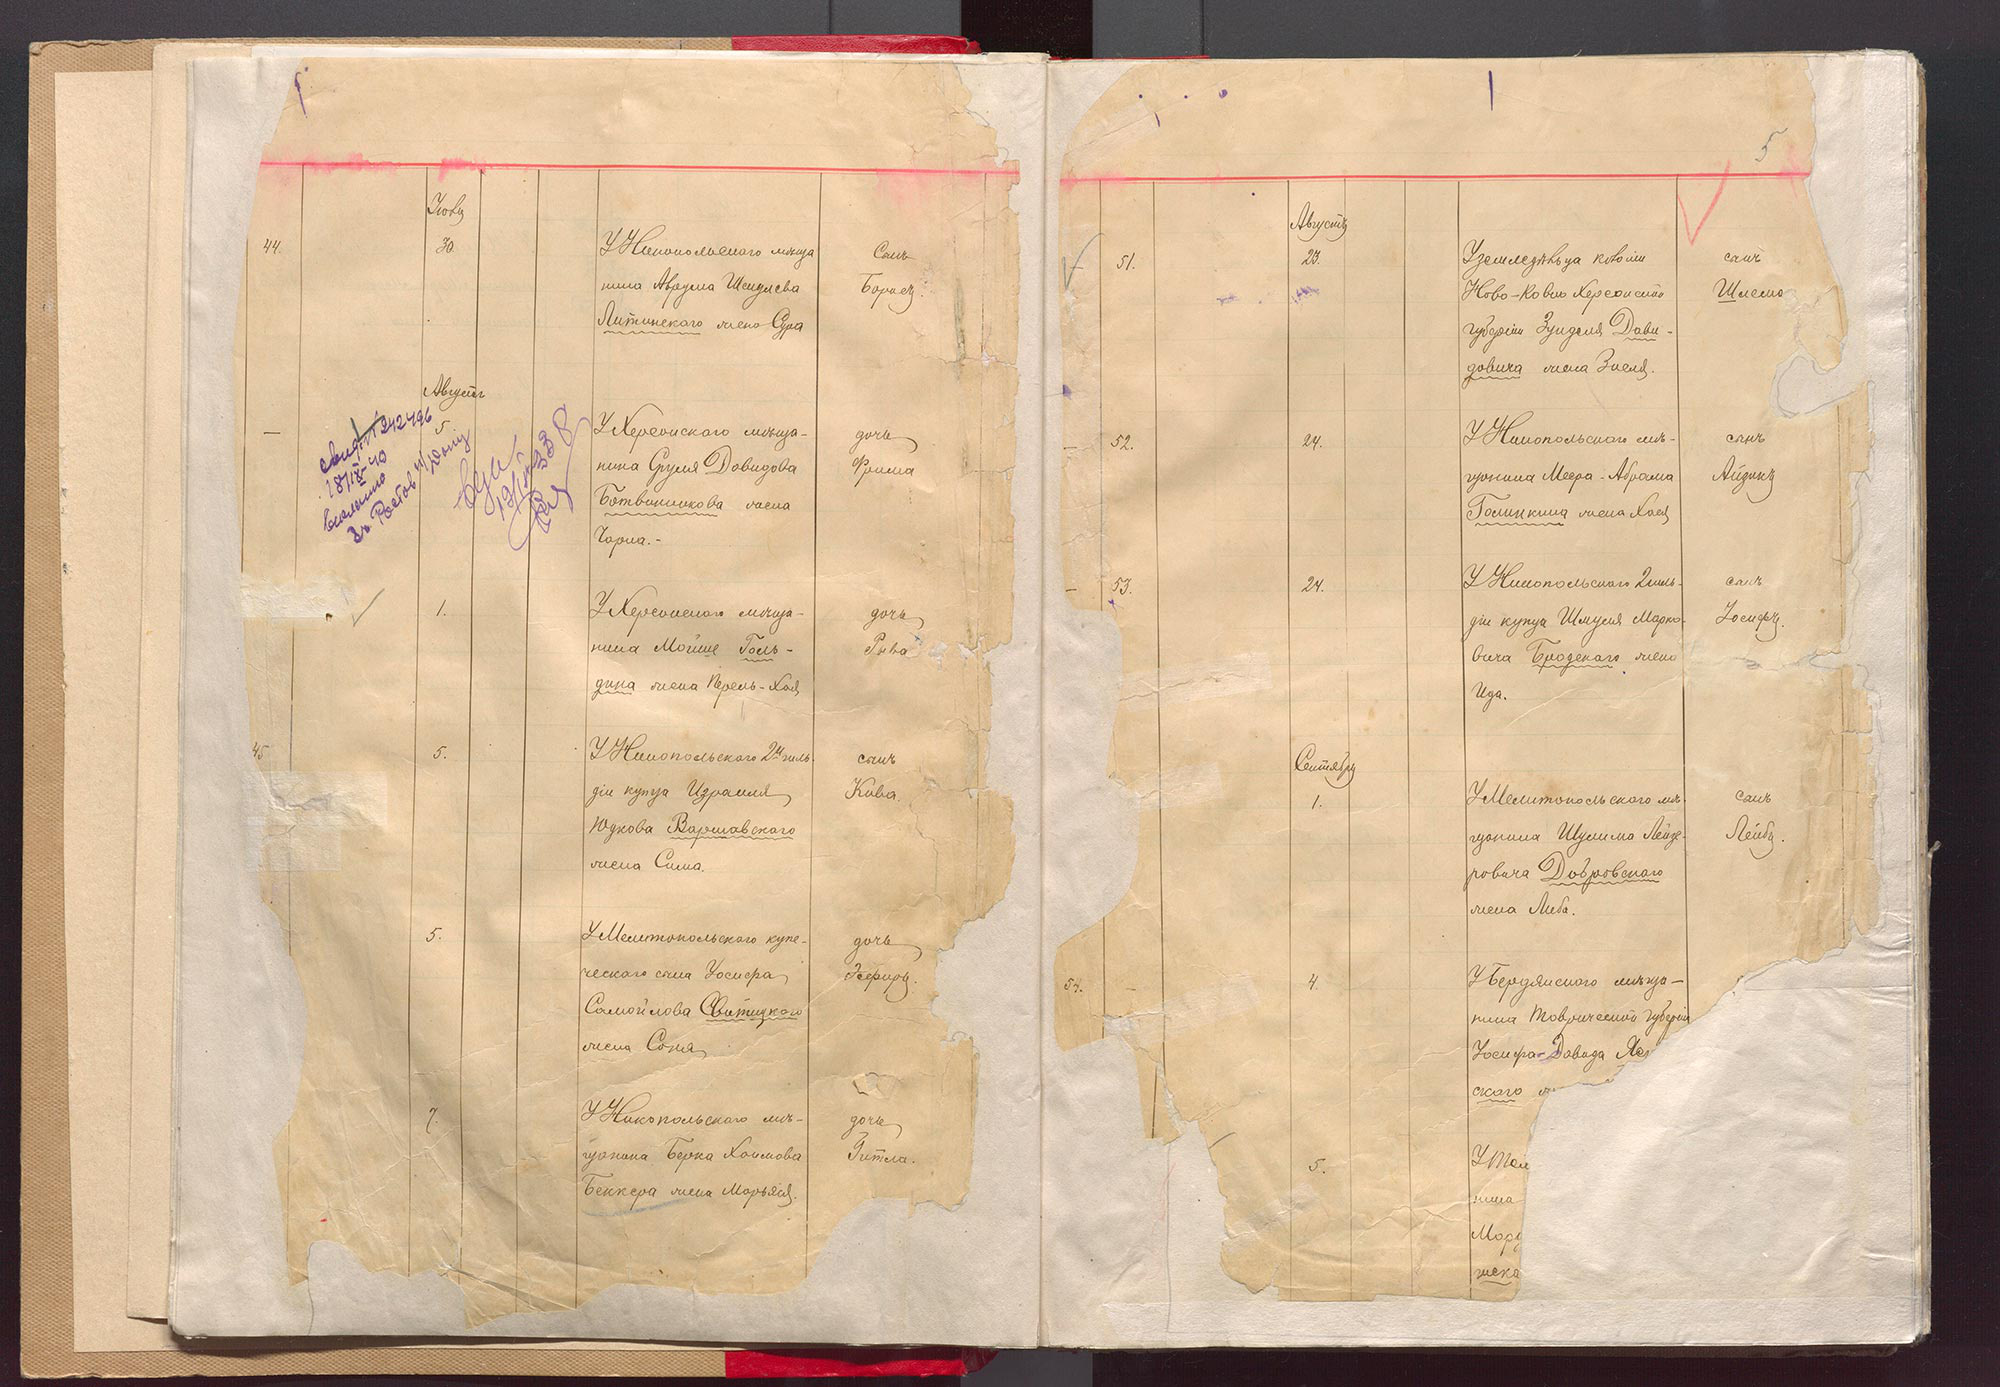 44.
30.
У Никопольскаго мѣща
нина Аврума
Литинскаго жена Сура
сынъ
Борисъ.
Августъ
5
У Херсонскаго мѣща-
нина Сруля Давидова
Ботвинникова жена
Чарна.-
дочь
Фрима
1.
У Херсонскаго мѣща-
нина Мойше Голь-
дина жена Перель-Хая
дочь
Рива
45
5.
У Никопольскаго 2й гиль-
діи купца Израиля
Юдкова Варшавскаго
жена Сима.
сынъ
Кива.
5.
У Мелитопольскаго купе-
ческаго сына Іосифа
Самойлова Свитицкаго
жена Соня
дочь
Эсфирь.
7.
У Никопольскаго мѣ-
щанина Берка Хаимова
Беккера жена Марьяся.
дочь
Гитла.
5
Августъ
51.
23.
У земледѣльца колоніи
Херсонской
губерніи Зунделя Дави-
довича жена Зисля.
сынъ
Шлемо
52.
24.
У Никопольскаго мѣ-
щанина Меера-Абрама
Голинкина жена Хася
сынъ
Айзикъ
53.
24.
У Никопольскаго 2 гиль-
діи купца Шмуля Марко-
вича Бродскаго жена
Ида.
сынъ
Іосифъ.
Сентябрь
1.
У Мелитопольскаго мѣ-
щанина Шулима Лейзе-
ровича Добровскаго
жена Либа.
сынъ
Лейбъ.
54.
4.
У Бердянскаго мѣща-
нина Таврической губерніи
Іосифа-Давида Яс
скаго
5.
нина